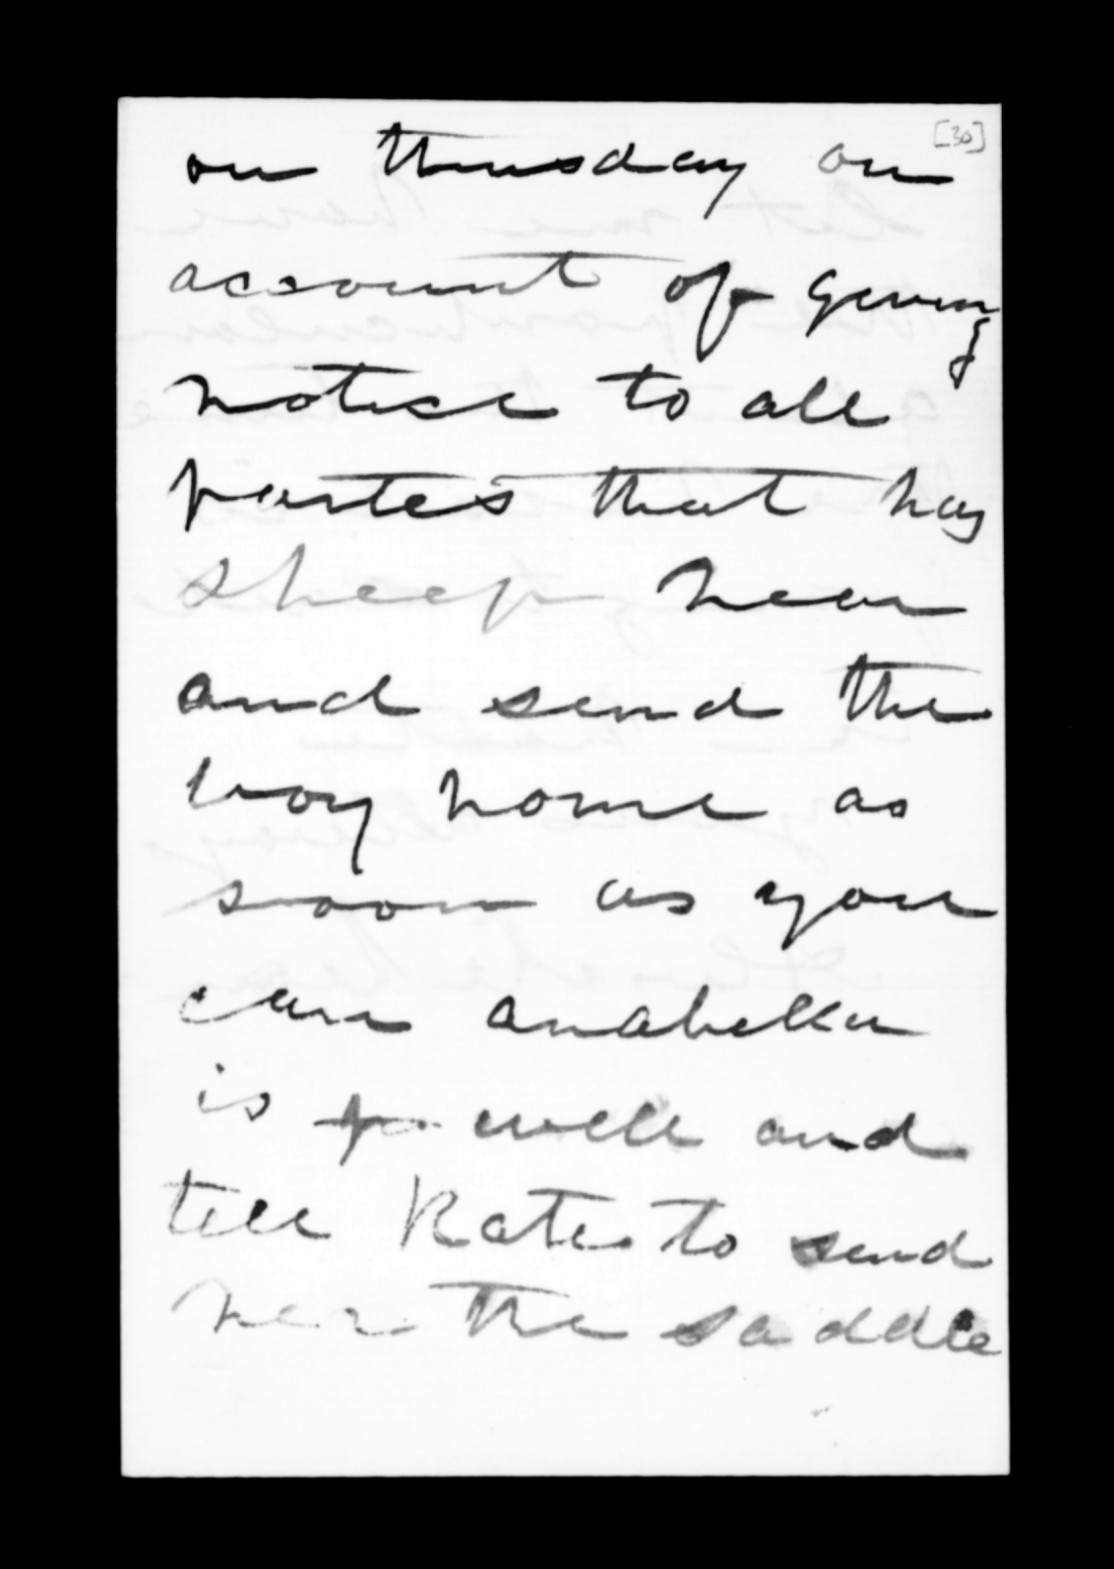 [30]
on thursday on
account of giving
notice to all
partes that has
sheep near
and send the
boy home as
soon as you
can anabella
is well and
tell Kate to send
her the saddle